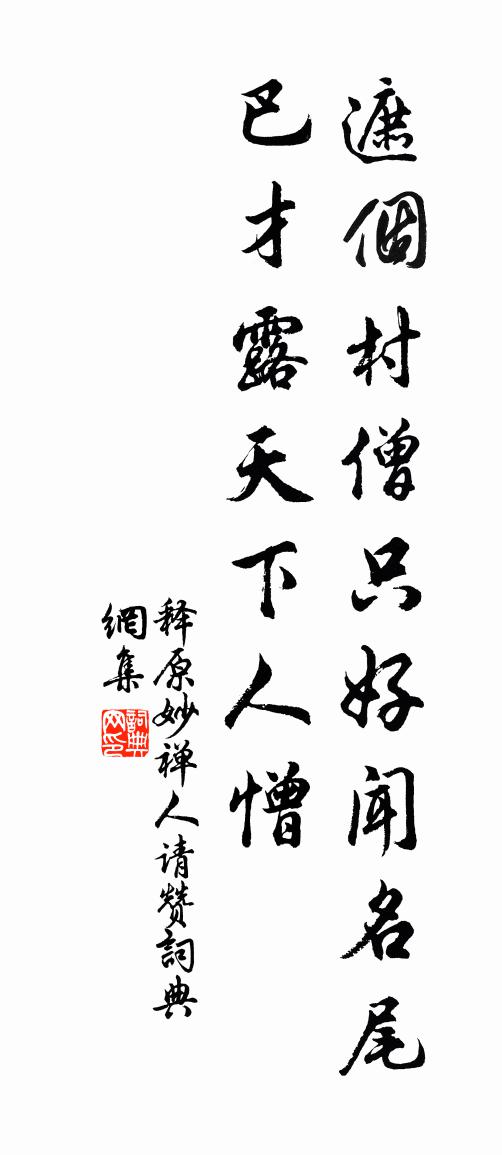 遮個村僧只好聞名尾
巴才露天下人憎
释原妙禅人请赞詞典
網集
詞典网印